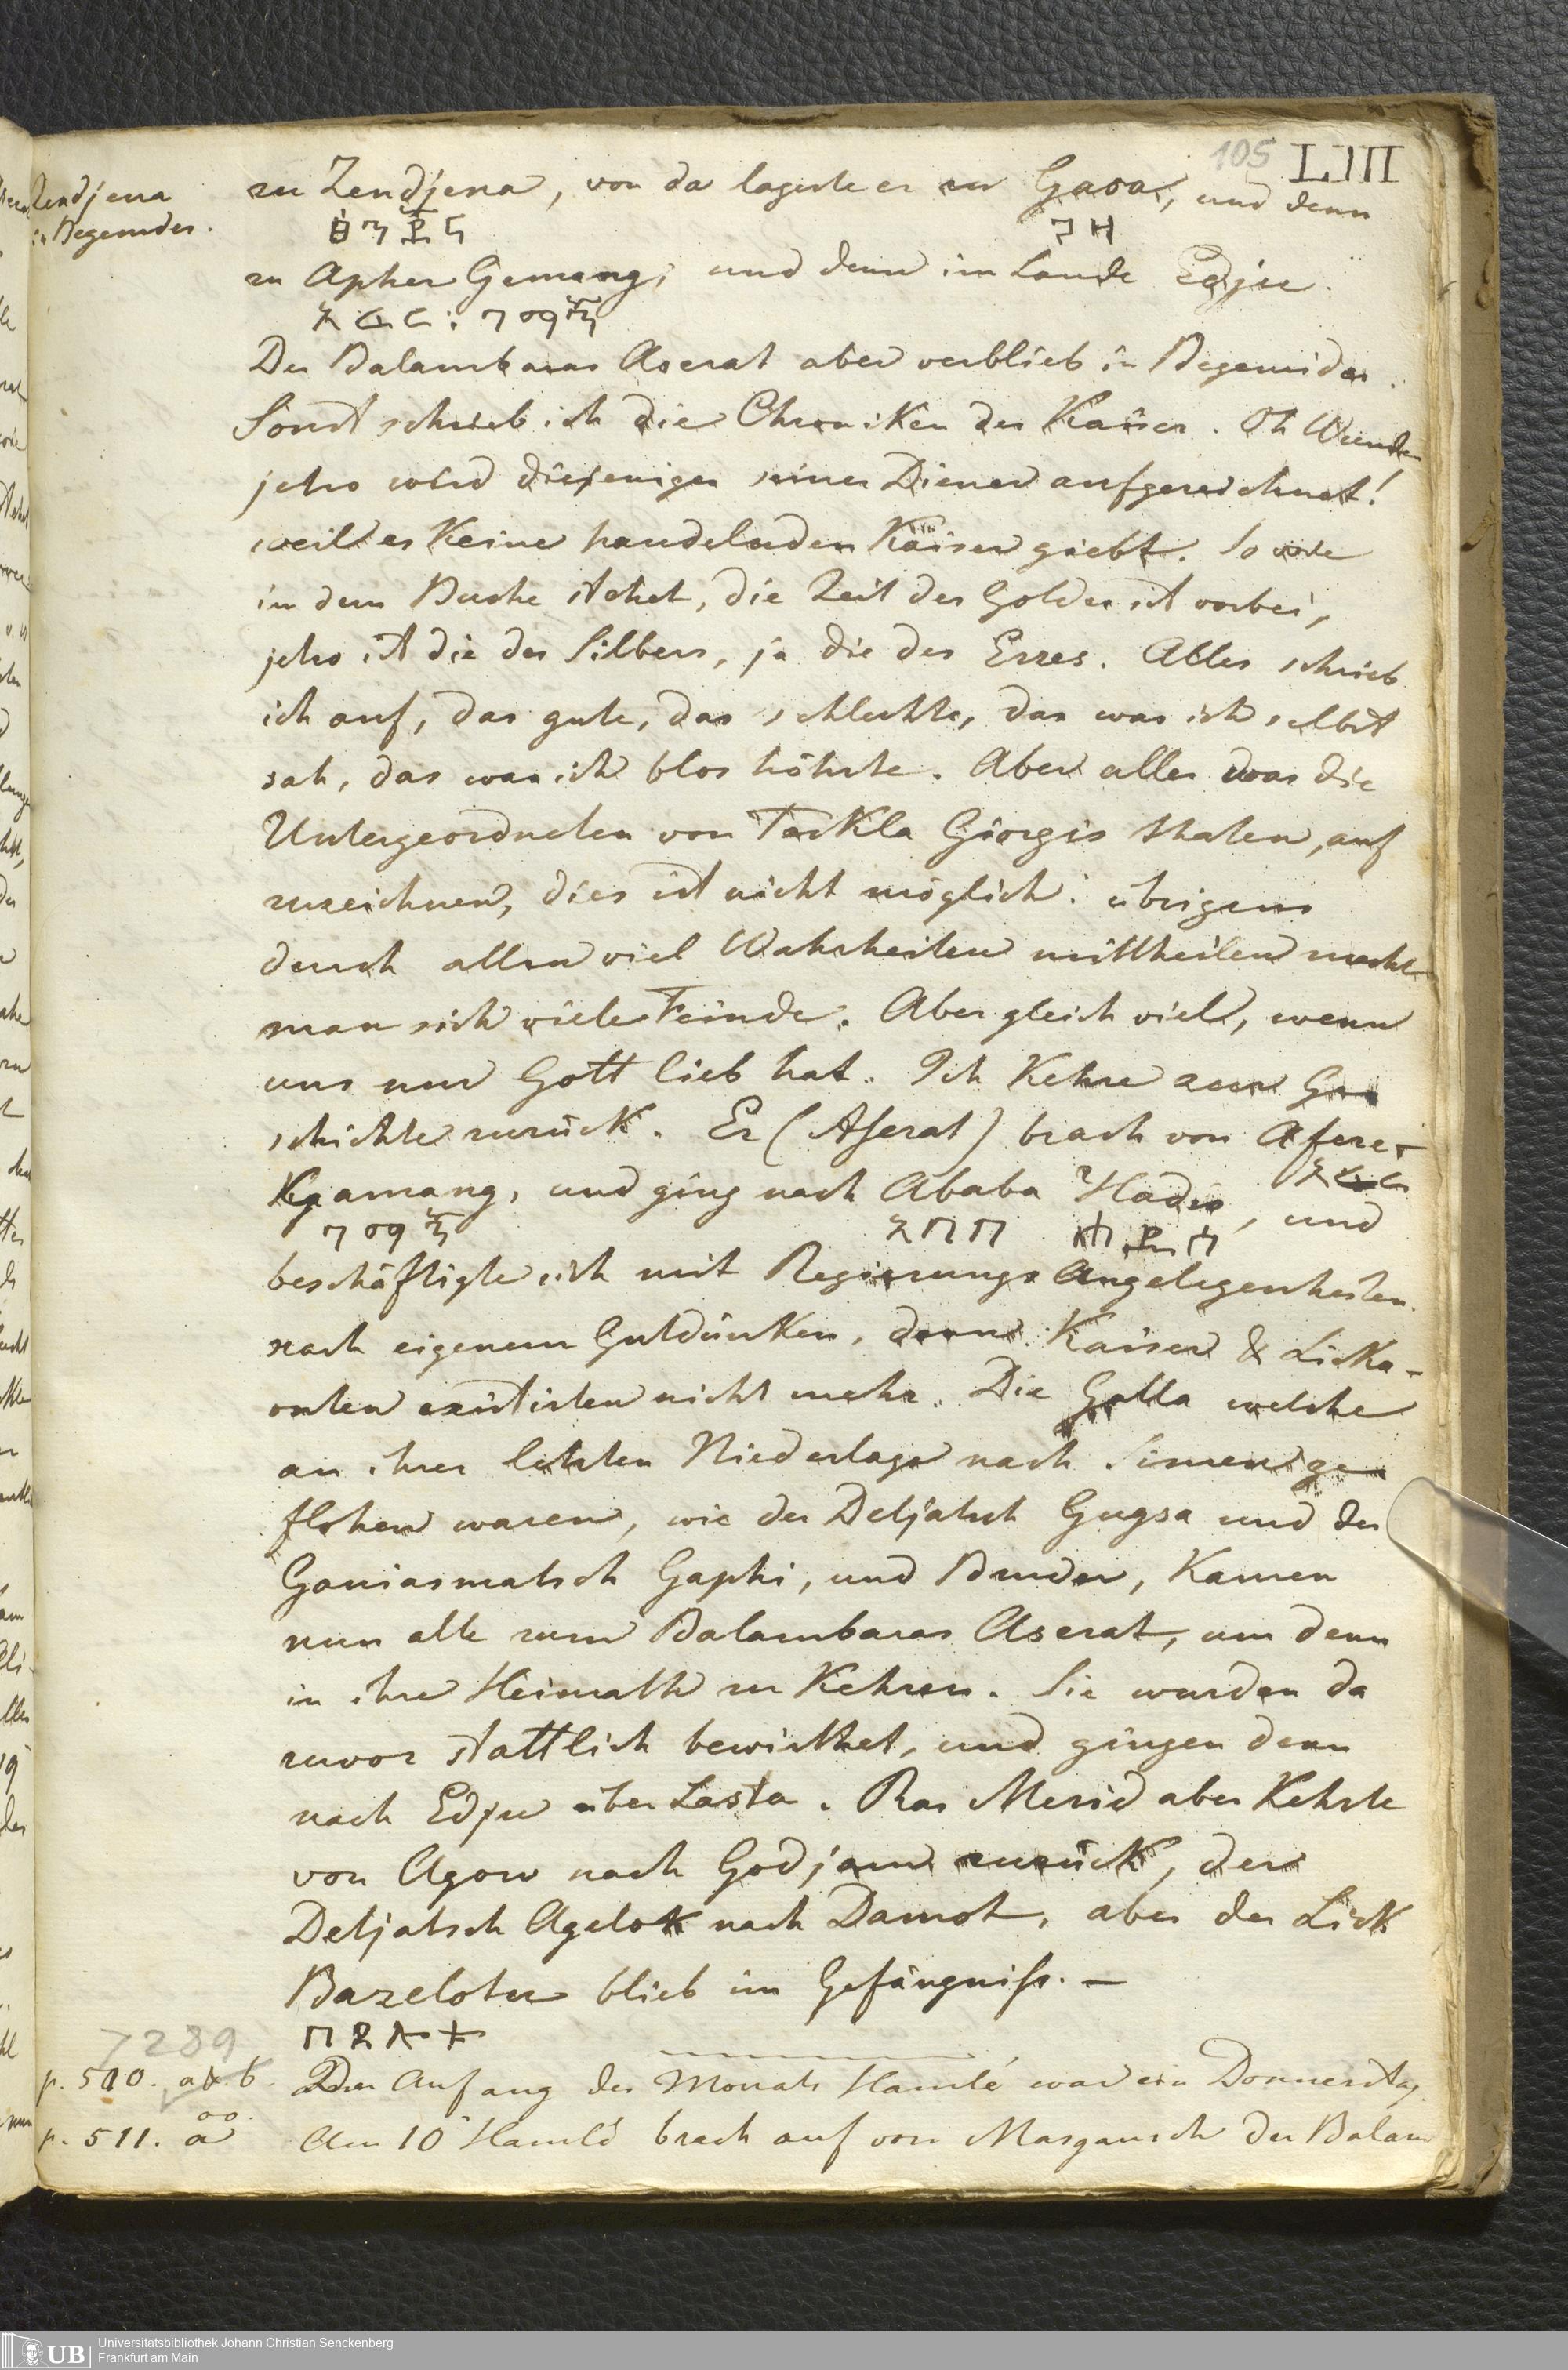 105 LIII
Zendjena
in Begemder.
zu Zendjena, von da lagerte er zu Gasa, und denn
ፀጓጇና ጋዛ
zu Apher Gemang, und denn im Lande Edju.
አፈር: ገማኟ
Der Balambaras Aserat aber verblieb in Begemider.
Sonst schrieb ich die Chroniken der Kaiser. Oh Wunder
jetzo wird diejenigen seiner Diener aufgezeichnet!
weil es keine handelnden Kaiser giebt. So wie
in dem Buche stehet, die Zeit des Goldes ist vorbei,
jetzo ist die des Silbers, ja die des Erzes. Alles schrieb
ich auf, das gute, das schlechte, das was ich selbst
sah, das was ich blos höhrte. Aber alles was die
Untergeordneten von Teckla Giorgis thaten, auf
zuzeichnen, dies ist nicht möglich: übrigens
durch allzu viel Wahrheiten mittheilen macht
man sich viele Feinde. Aber gleich viel, wenn
uns nur Gott lieb hat. Ich kehre zur Ge
schichte zurück. Er (Aserat) brach von Afere-
Kgamang, und ging nach Ababa Hadis, und
ገማኟ አበበ ሐዲስ
beschäftigte sich mit Regierungs Angelegenheiten
nach eigenem Gutdünken, denn Kaiser & Licka-
onten existirten nicht mehr. Die Galla welche
an ihrer letzten Niederlage nach Simen ge
flohen waren, wie der Detjatsch Gugsa und der
Ganiasmatsch Gaphi, und Bruder, kamen
nun alle zum Balambaras Aserat, um denn
in ihre Heimath zu kehren. Sie wurden da
zuvor stattlich bewirthet, und gingen denn
nach Edju über Lasta. Ras Merid aber kehrte
von Agow nach Godjam zurück, der
Detjatsch Agelok nach Damot, aber der Lick
Bazelotu blieb im Gefängniß. —
በጸሎት
7289
p. 510. a & b. Der Anfang des Monats Hamlé war ein Donnerstag
p. 511. a Am 10 Hamlé brach auf von Margansch der Balam
Universitätsbibliothek Johann Christian Senckenberg
Frankfurt am Main
UB